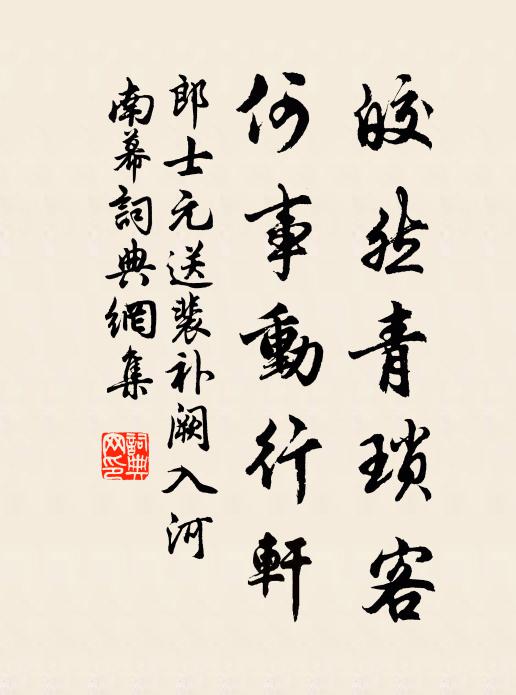 皎然青瑣客
何事動行軒
郎士元送裴补阙入河
南幕詞典網集
詞典
网印